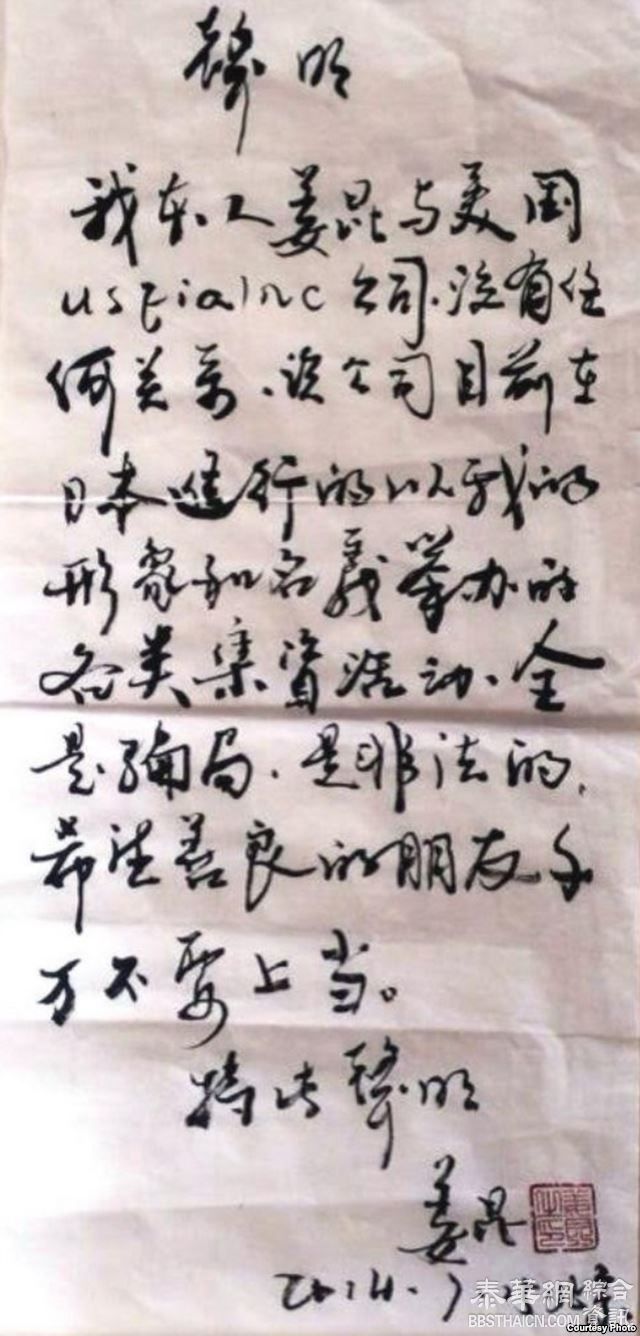 聲明
我本人姜昆与美国
usfiaInc公司.没有任
何关系、该公司目前在
日本進行的以我的
形象和名義举办的
各类集資活动、全
是骗局、是非法的,
希望善良的朋友千
万不要上当。
特此聲明
姜昆
2014.7
泰華網 綜合資訊
BBSTHAICN.COM
Courtesy Photo